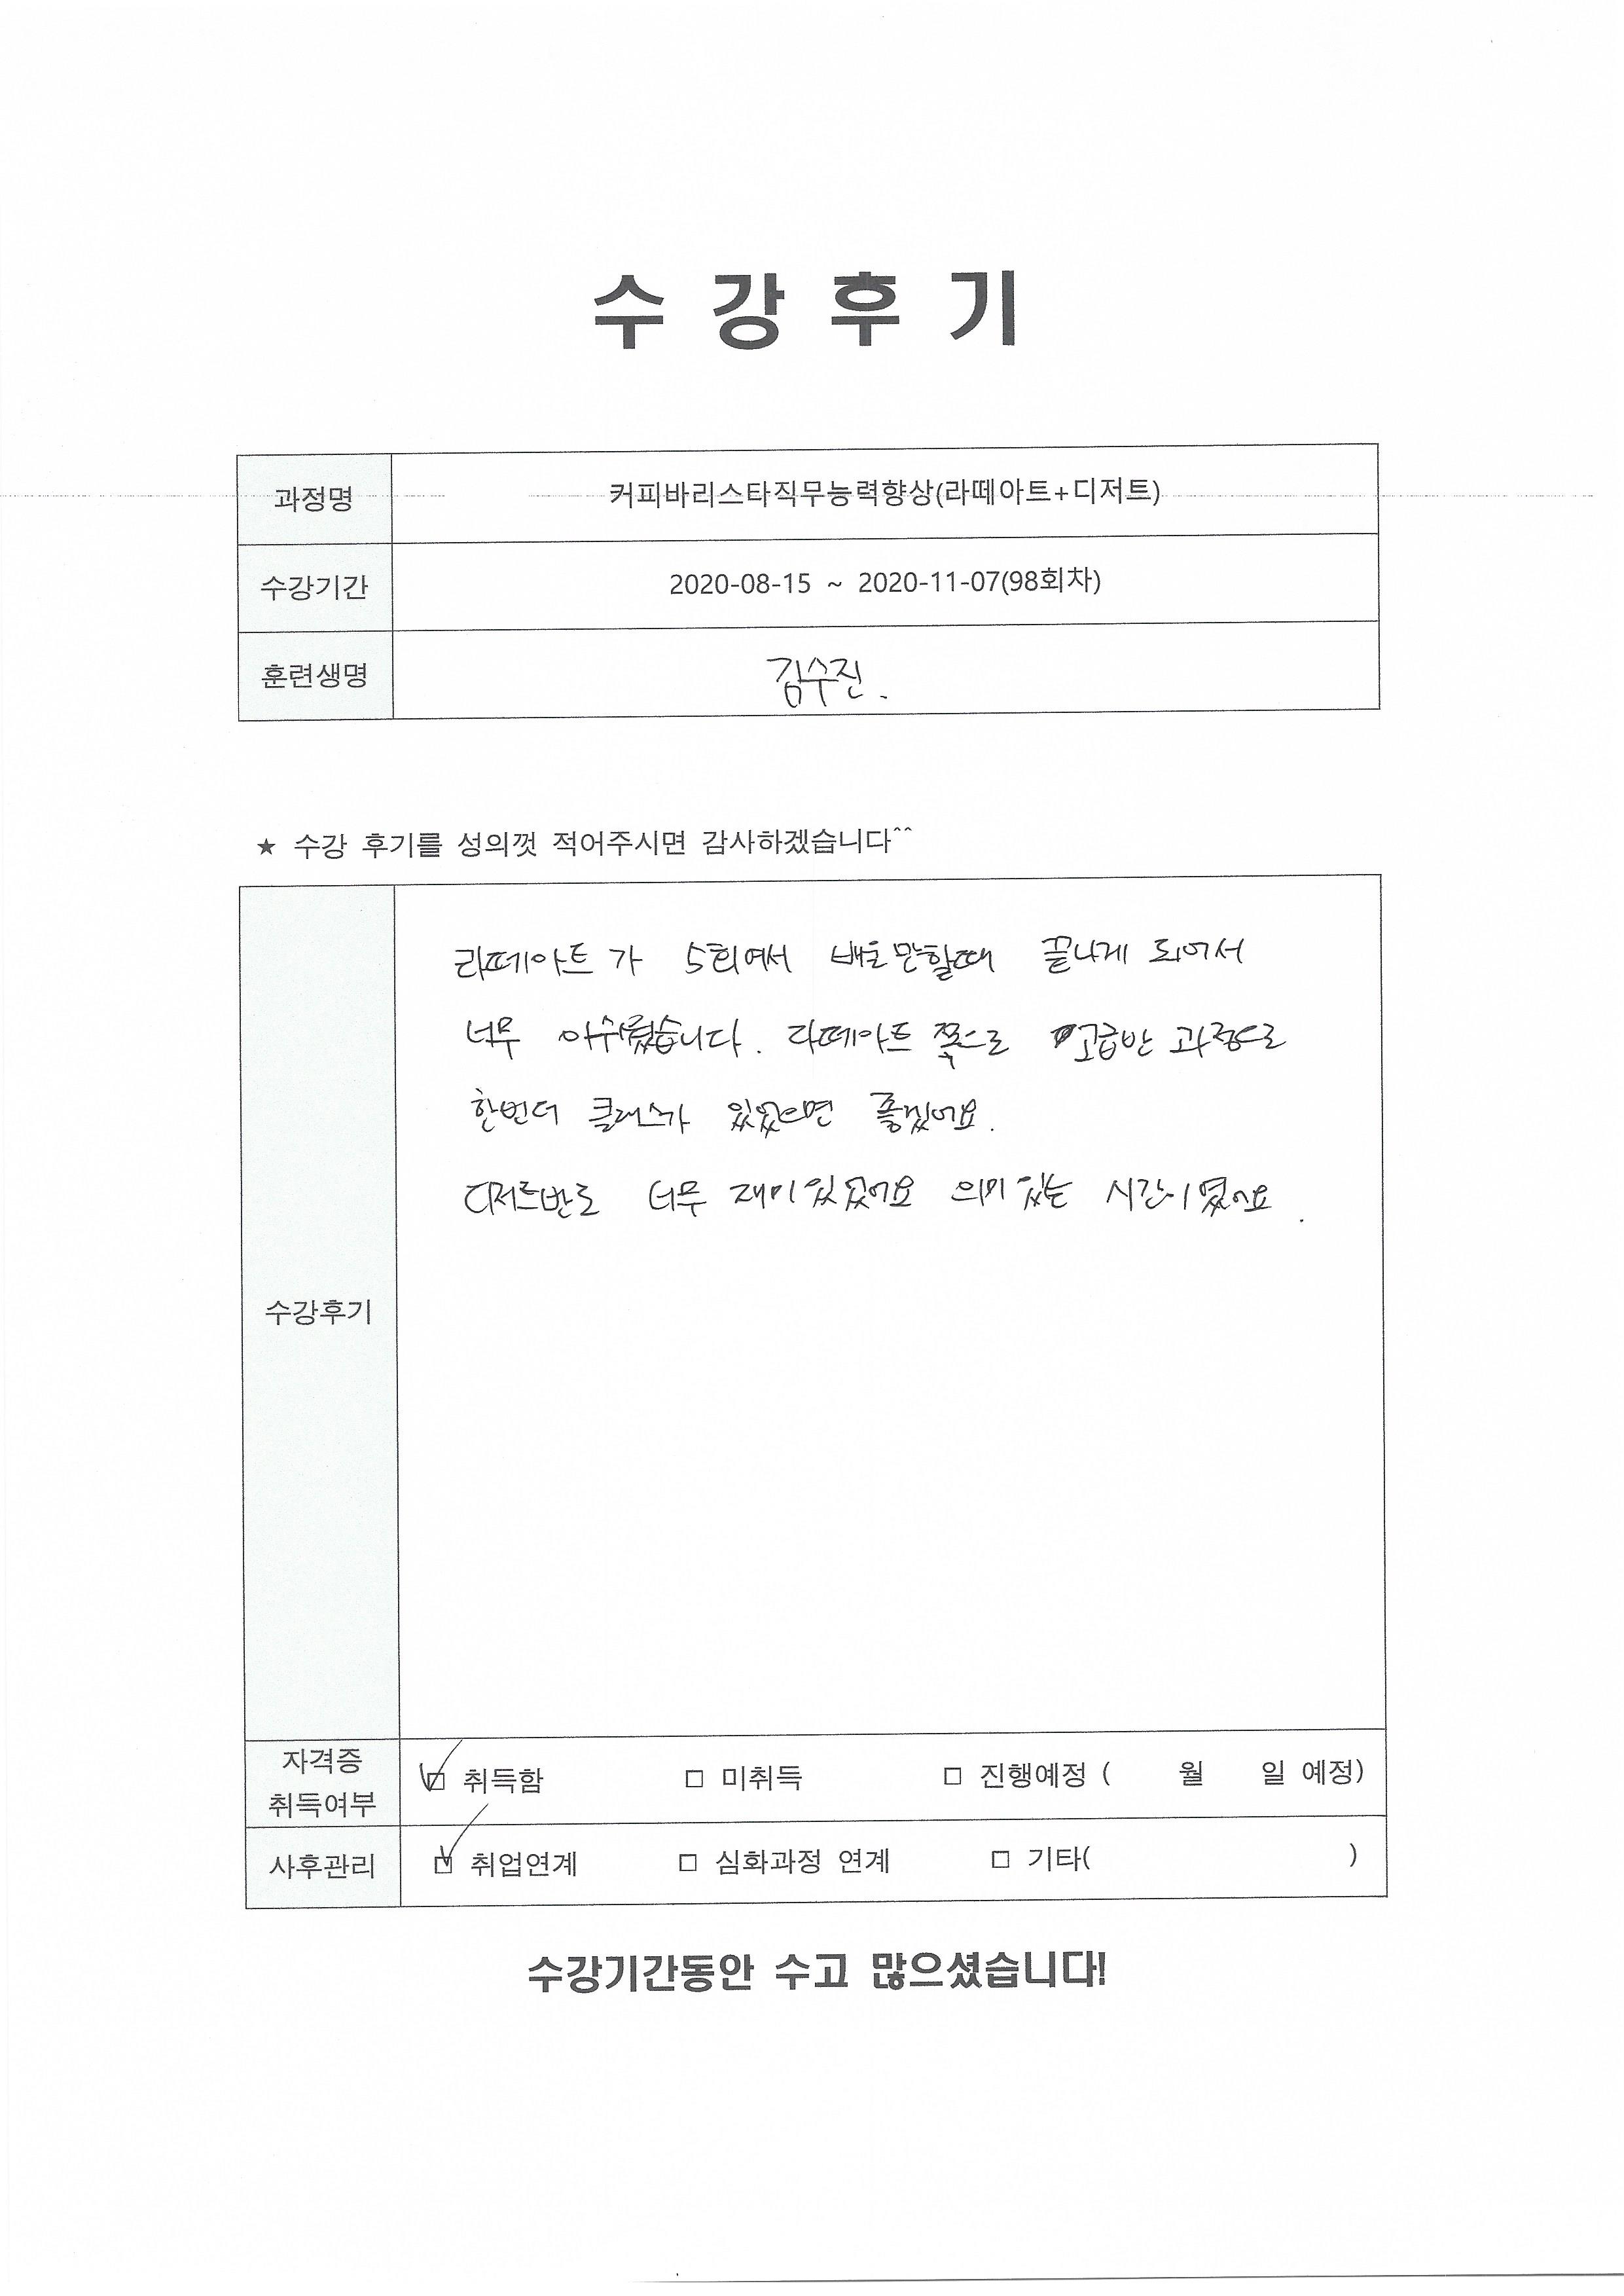 수 강 후 기
과정명 커피바리스타직무능력향상(라떼아트+디저트)
수강기간 2020-08-15 ~ 2020-11-07(98회차)
훈련생명 김수진.
★ 수강 후기를 성의껏 적어주시면 감사하겠습니다^^
라떼아트가 5회여서 배울만할때 끝나게 되어서
너무 아쉬웠습니다. 라떼아트 쪽으로 고급반 과정으로
한번더 클래스가 있었으면 좋겠어요.
디저트반도 너무 재미있었어요 의미있는 시간이였어요.
수강후기
자격증
취득여부 ☑ 취득함 □ 미취득 □ 진행예정 ( 월 일 예정)
사후관리 ☑ 취업연계 □ 심화과정 연계 □ 기타( )
수강기간동안 수고 많으셨습니다!